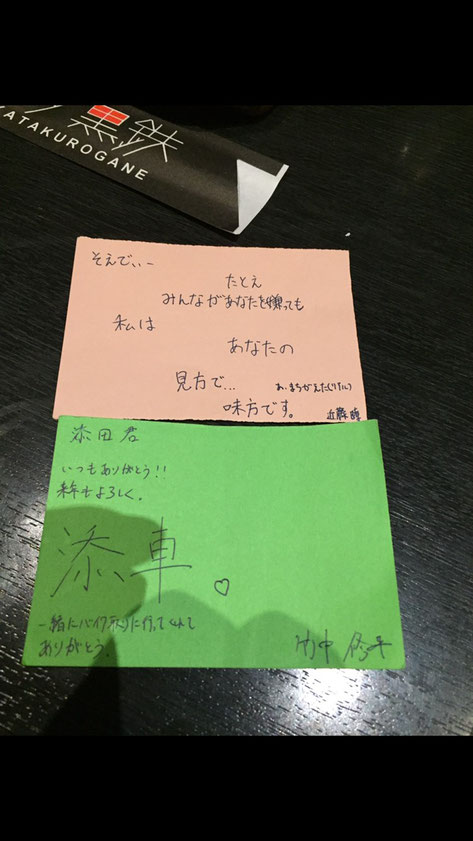 黒鉄
ATAKUROGANE
そえでぃー
たとえ
みんながあなたを嫌っても
私は
あなたの
見方で…
あ、まちがえた(リアルに)
味方です。
近藤
添田君
いつもありがとう!!
来年もよろしく.
添車。♡
一緒にバイク乗りに行ってくれて
ありがとう.
竹中